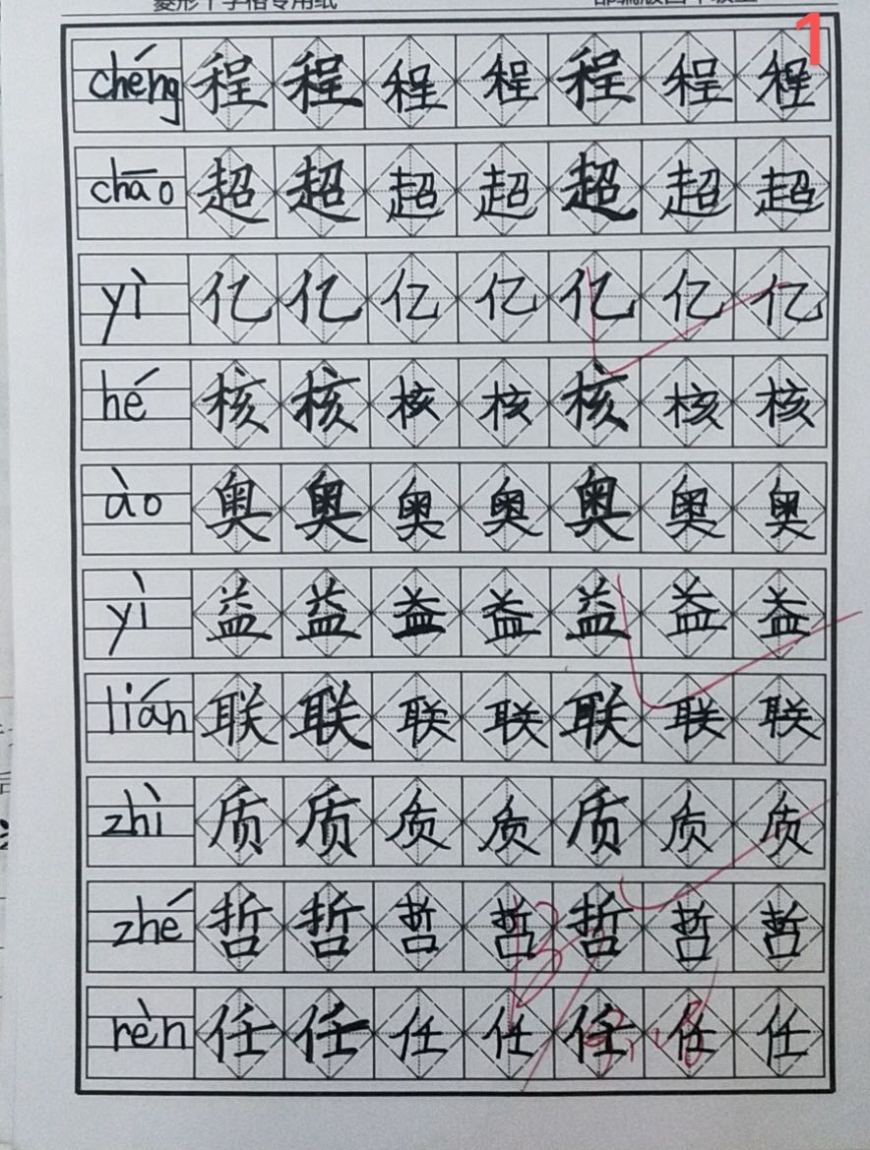 菱形十字格专用纸
1
chéng 程 程 程 程 程 程 程
chāo 超 超 超 超 超 超 超
yì 亿 亿 亿 亿 亿 亿 亿
hé 核 核 核 核 核 核 核
ào 奥 奥 奥 奥 奥 奥 奥
yì 益 益 益 益 益 益 益
lián 联 联 联 联 联 联 联
zhì 质 质 质 质 质 质 质
zhé 哲 哲 哲 哲 哲 哲 哲
rèn 任 任 任 任 任 任 任